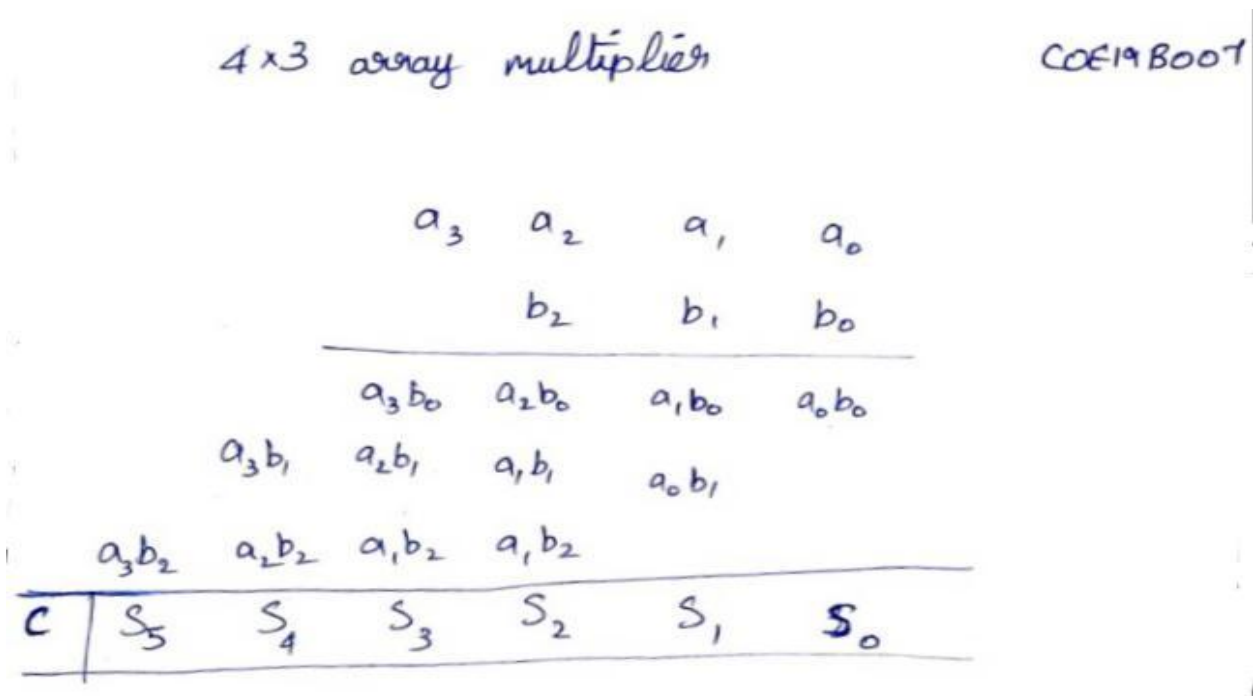 4x3 array multiplier COE19B007
a₃ a₂ a₁ a₀
b₂ b₁ b₀
a₃b₀ a₂b₀ a₁b₀ a₀b₀
a₃b₁ a₂b₁ a₁b₁ a₀b₁
a₃b₂ a₂b₂ a₁b₂ a₁b₂
C S₅ S₄ S₃ S₂ S₁ S₀